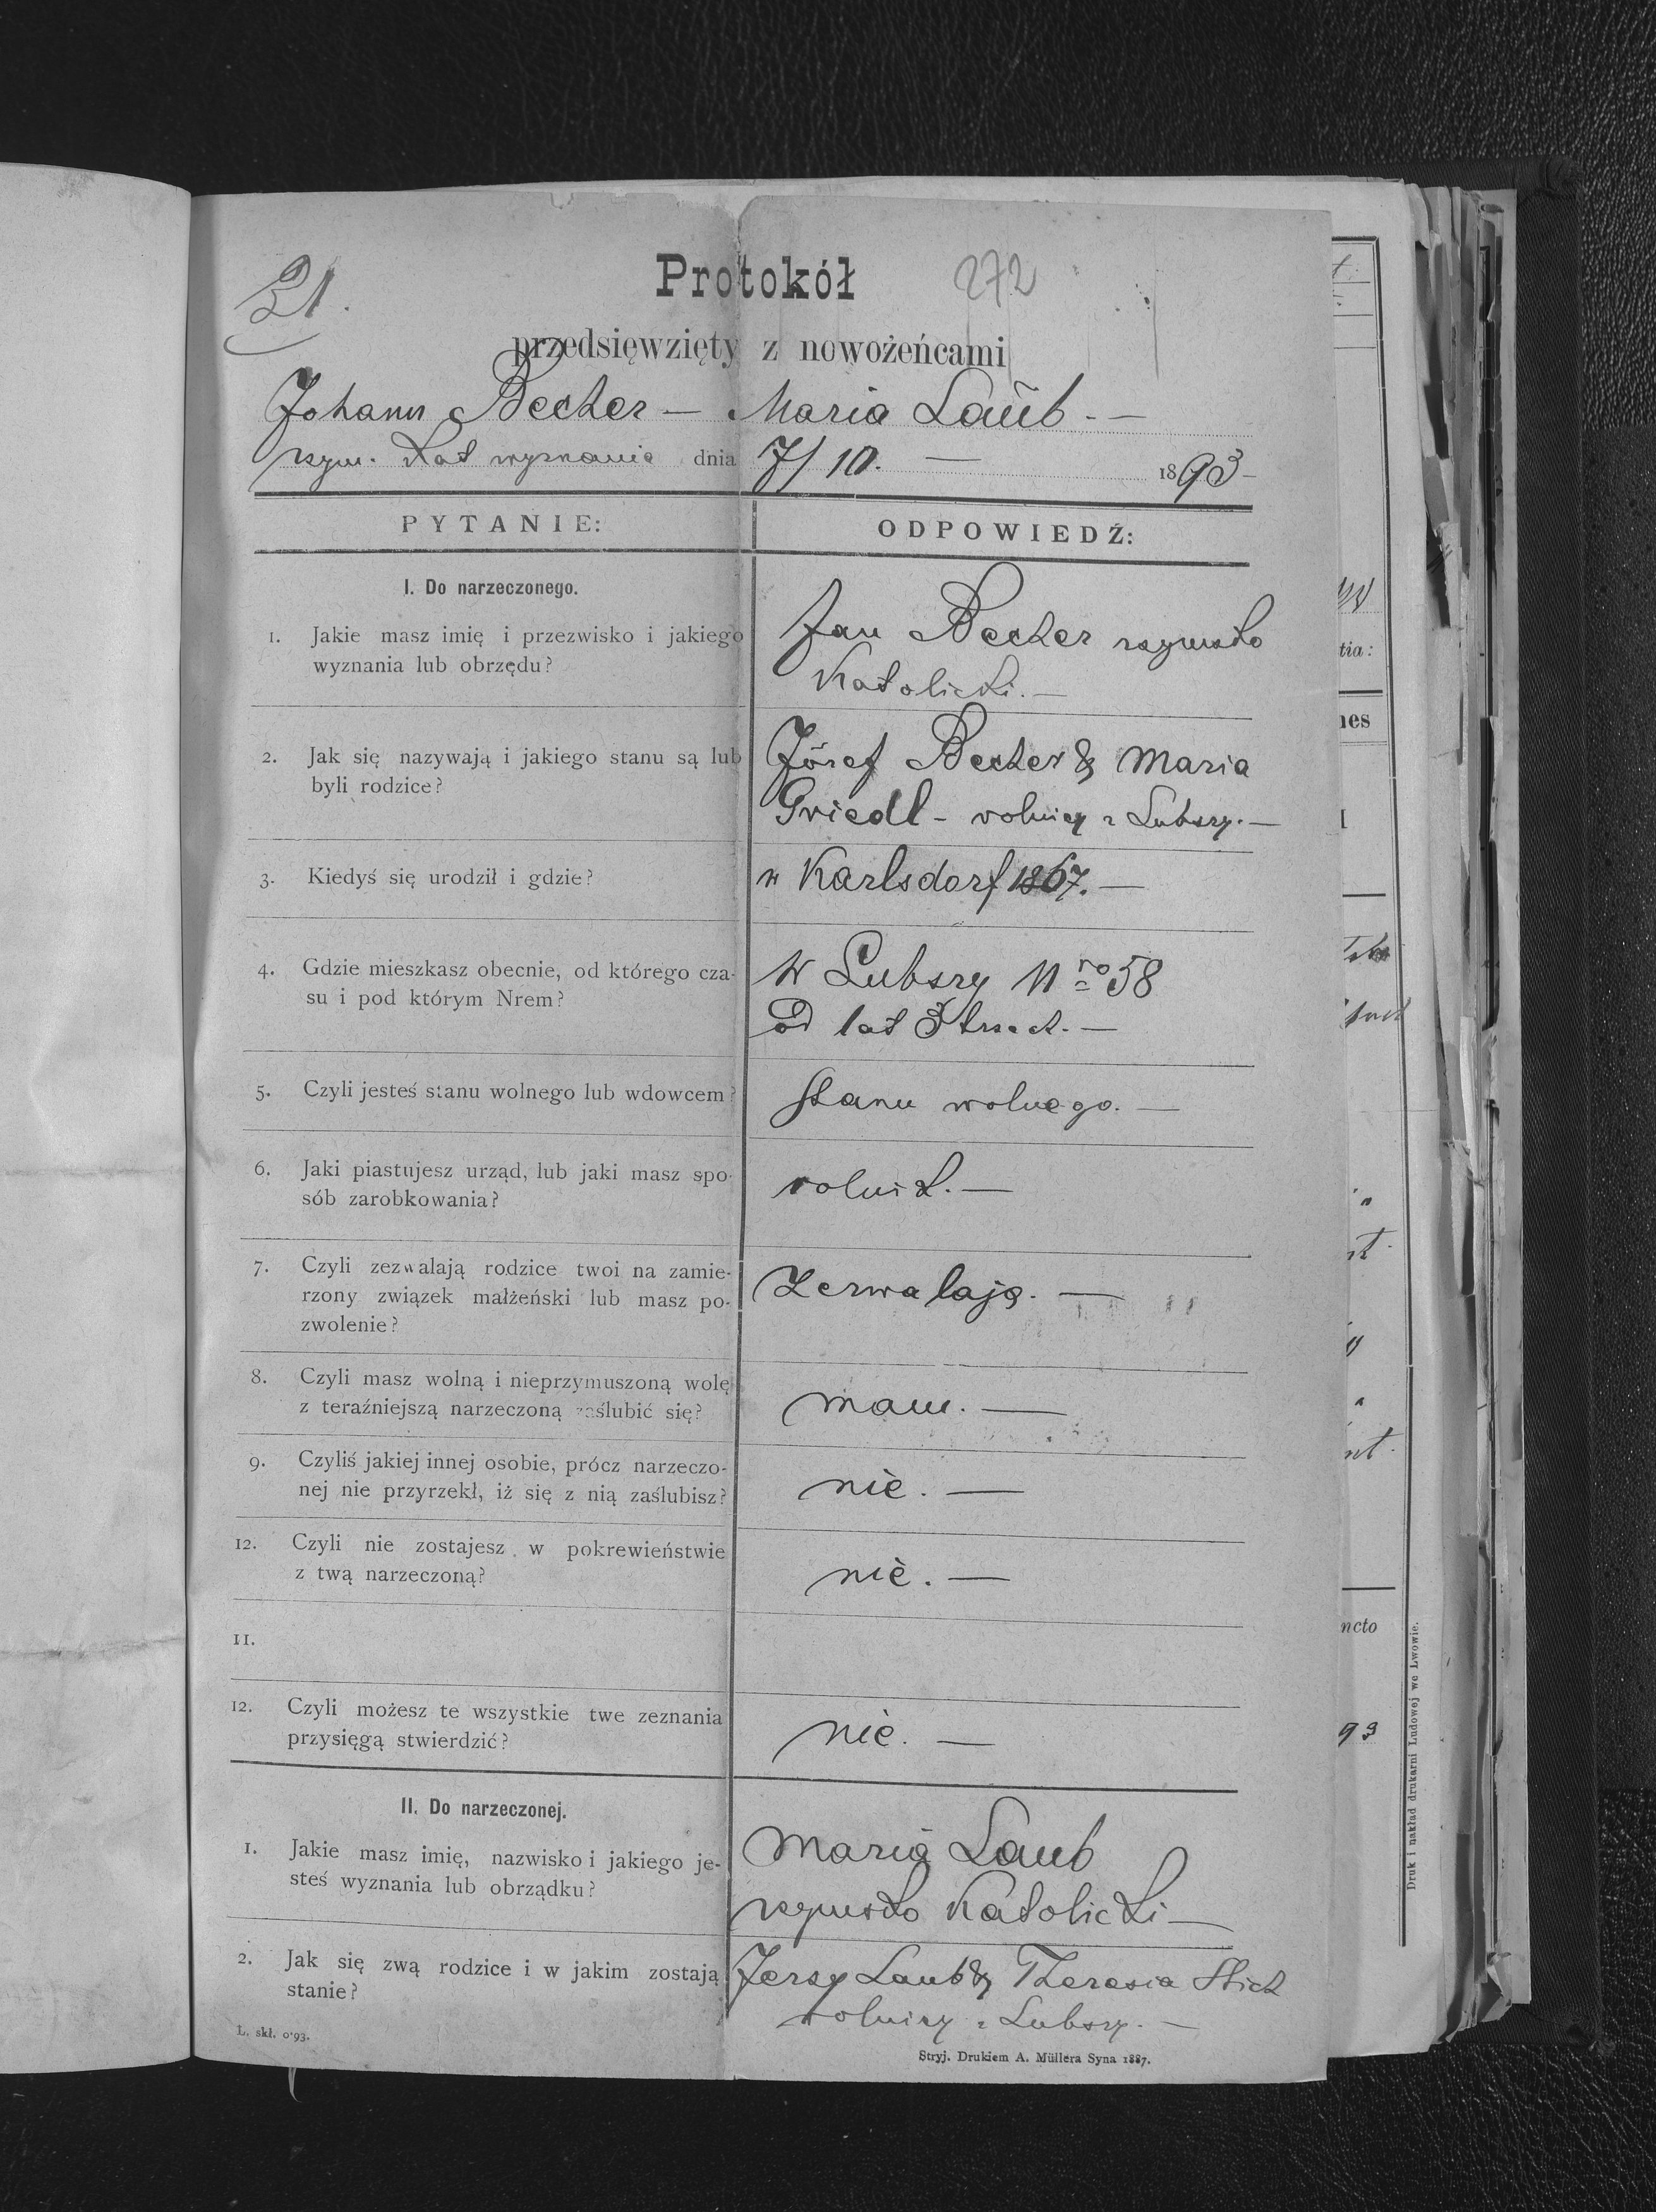 21.
Protokół 272
przedsięwzięty z nowożeńcami
Johann Becher — Maria Laub. —
rzym. kat wyznania dnia 7/10. — 1893 —
PYTANIE: ODPOWIEDŹ:
I. Do narzeczonego.
1. Jakie masz imię i przezwisko i jakiego
wyznania lub obrzędu?
Jan Becher rzymsko
Katolicki. —
2. Jak się nazywają i jakiego stanu są lub
byli rodzice?
Józef Becher & Maria
Griedl - rolnicy z Lubszy. —
3. Kiedyś się urodził i gdzie?
w Karlsdorf 1867. —
4. Gdzie mieszkasz obecnie, od którego cza-
su i pod którym Nrem?
w Lubszy Nro 58
od lat 3 trzech. —
5. Czyli jesteś stanu wolnego lub wdowcem?
Stanu wolnego. —
6. Jaki piastujesz urząd, lub jaki masz spo-
sób zarobkowania?
rolnik. —
7. Czyli zezwalają rodzice twoi na zamie-
rzony związek małżeński lub masz po-
zwolenie?
Zezwalają. —
8. Czyli masz wolną i nieprzymuszoną wolę
z teraźniejszą narzeczoną zaślubić się?
mam. —
9. Czyliś jakiej innej osobie, prócz narzeczo-
nej nie przyrzekł, iż się z nią zaślubisz?
nie. —
12. Czyli nie zostajesz w pokrewieństwie
z twą narzeczoną?
nie. —
11.
12. Czyli możesz te wszystkie twe zeznania
przysięgą stwierdzić?
nie. —
II. Do narzeczonej.
1. Jakie masz imię, nazwisko i jakiego je-
steś wyznania lub obrządku?
Maria Laub
rzymsko Katolicki —
2. Jak się zwą rodzice i w jakim zostają
stanie?
Jerzy Laub & Theresia Stich
rolnicy z Lubszy. —
L. skł. o'93.
Stryj. Drukiem A. Müllera Syna 1887.
tia:
nes
ncto
93
Druk i nakład drukarni Ludowej we Lwowie.